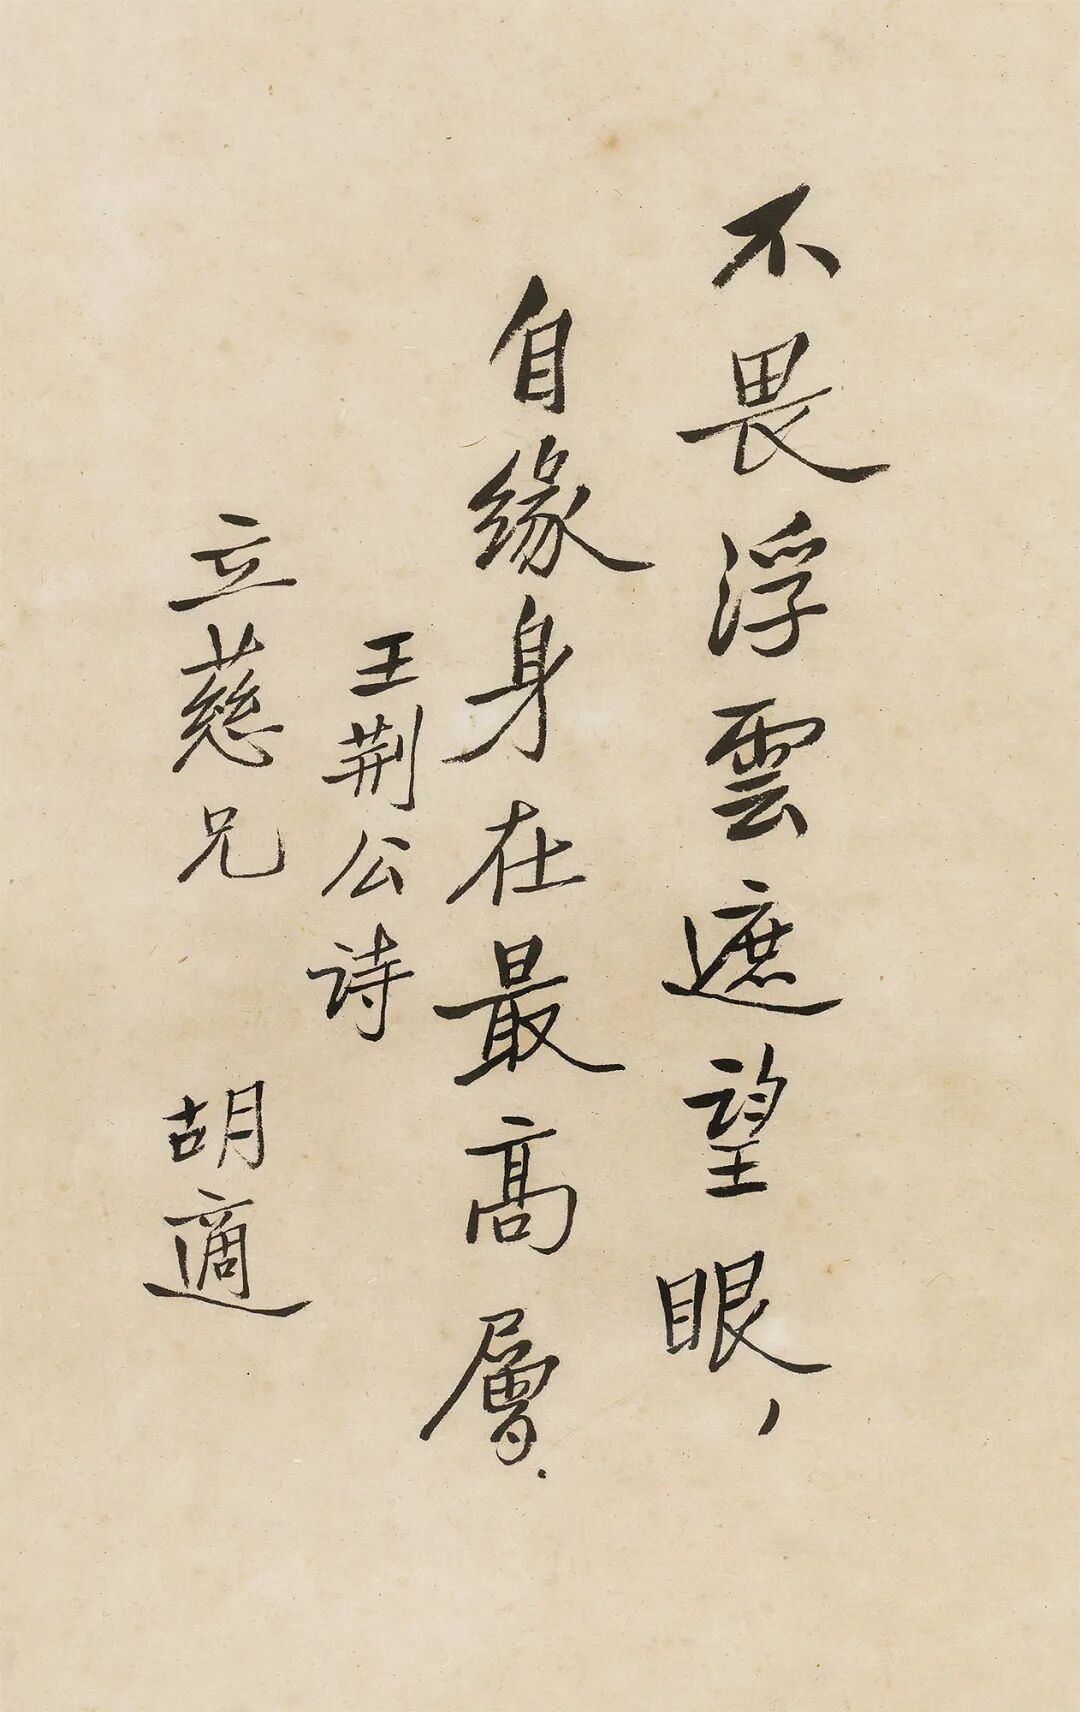 不畏浮雲遮望眼，
自缘身在最高層.
王荆公诗
立慈兄 胡適